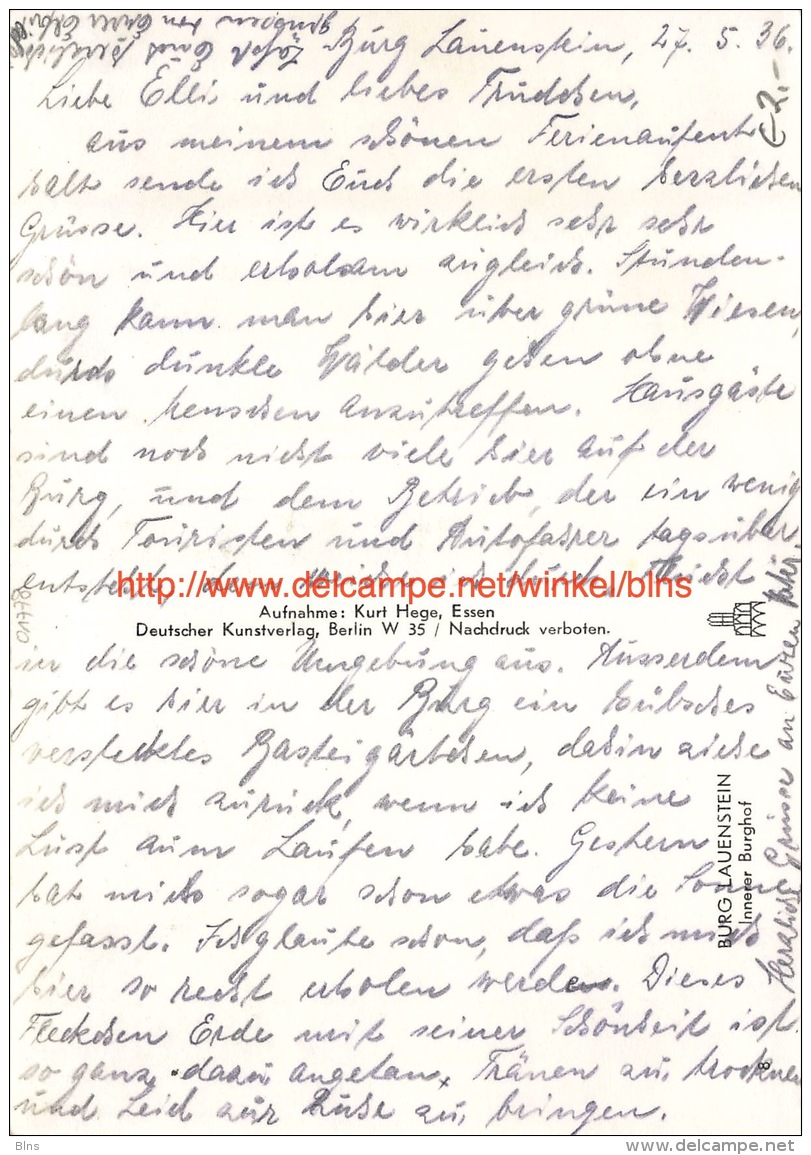 Burg Lauenstein, 27. 5. 36.
Liebe Elli und liebes Trudchen,
aus meinem schönen Ferienaufent
halt sende ich Euch die ersten herzlichen
Grüsse. Hier ist es wirklich sehr sehr
schön und erholsam zugleich. Stunden-
lang kann man hier über grüne Wiesen,
durch dunkle Wälder gehen ohne
einen Menschen anzutreffen. Hausgäste
sind noch nicht viele hier auf der
Burg, und dem Betrieb, der ein wenig
durch Touristen und Autofahrer tagsüber
entsteht, dem
http://www.delcampe.net/winkel/blns
01778
Aufnahme: Kurt Hege, Essen
Deutscher Kunstverlag, Berlin W 35 / Nachdruck verboten.
in die schöne Umgebung aus. Ausserdem
gibt es hier in der Burg ein hübsches
verstecktes Basteigärtchen, dahin ziehe
ich mich zurück, wenn ich keine
Lust zum Laufen habe. Gestern
hat mich sogar schon etwas die Sonne
gefasst. Ich glaube schon, daß ich mich
hier so recht erholen werde. Dieses
Fleckchen Erde mit seiner Schönheit ist
so ganz dazu angetan, Tränen zu trocknen
und Leid zur Ruhe zu bringen.
BURG LAUENSTEIN
Innerer Burghof
8
Herzliche Grüsse an Euren Vater.
Blns
www.delcampe.net